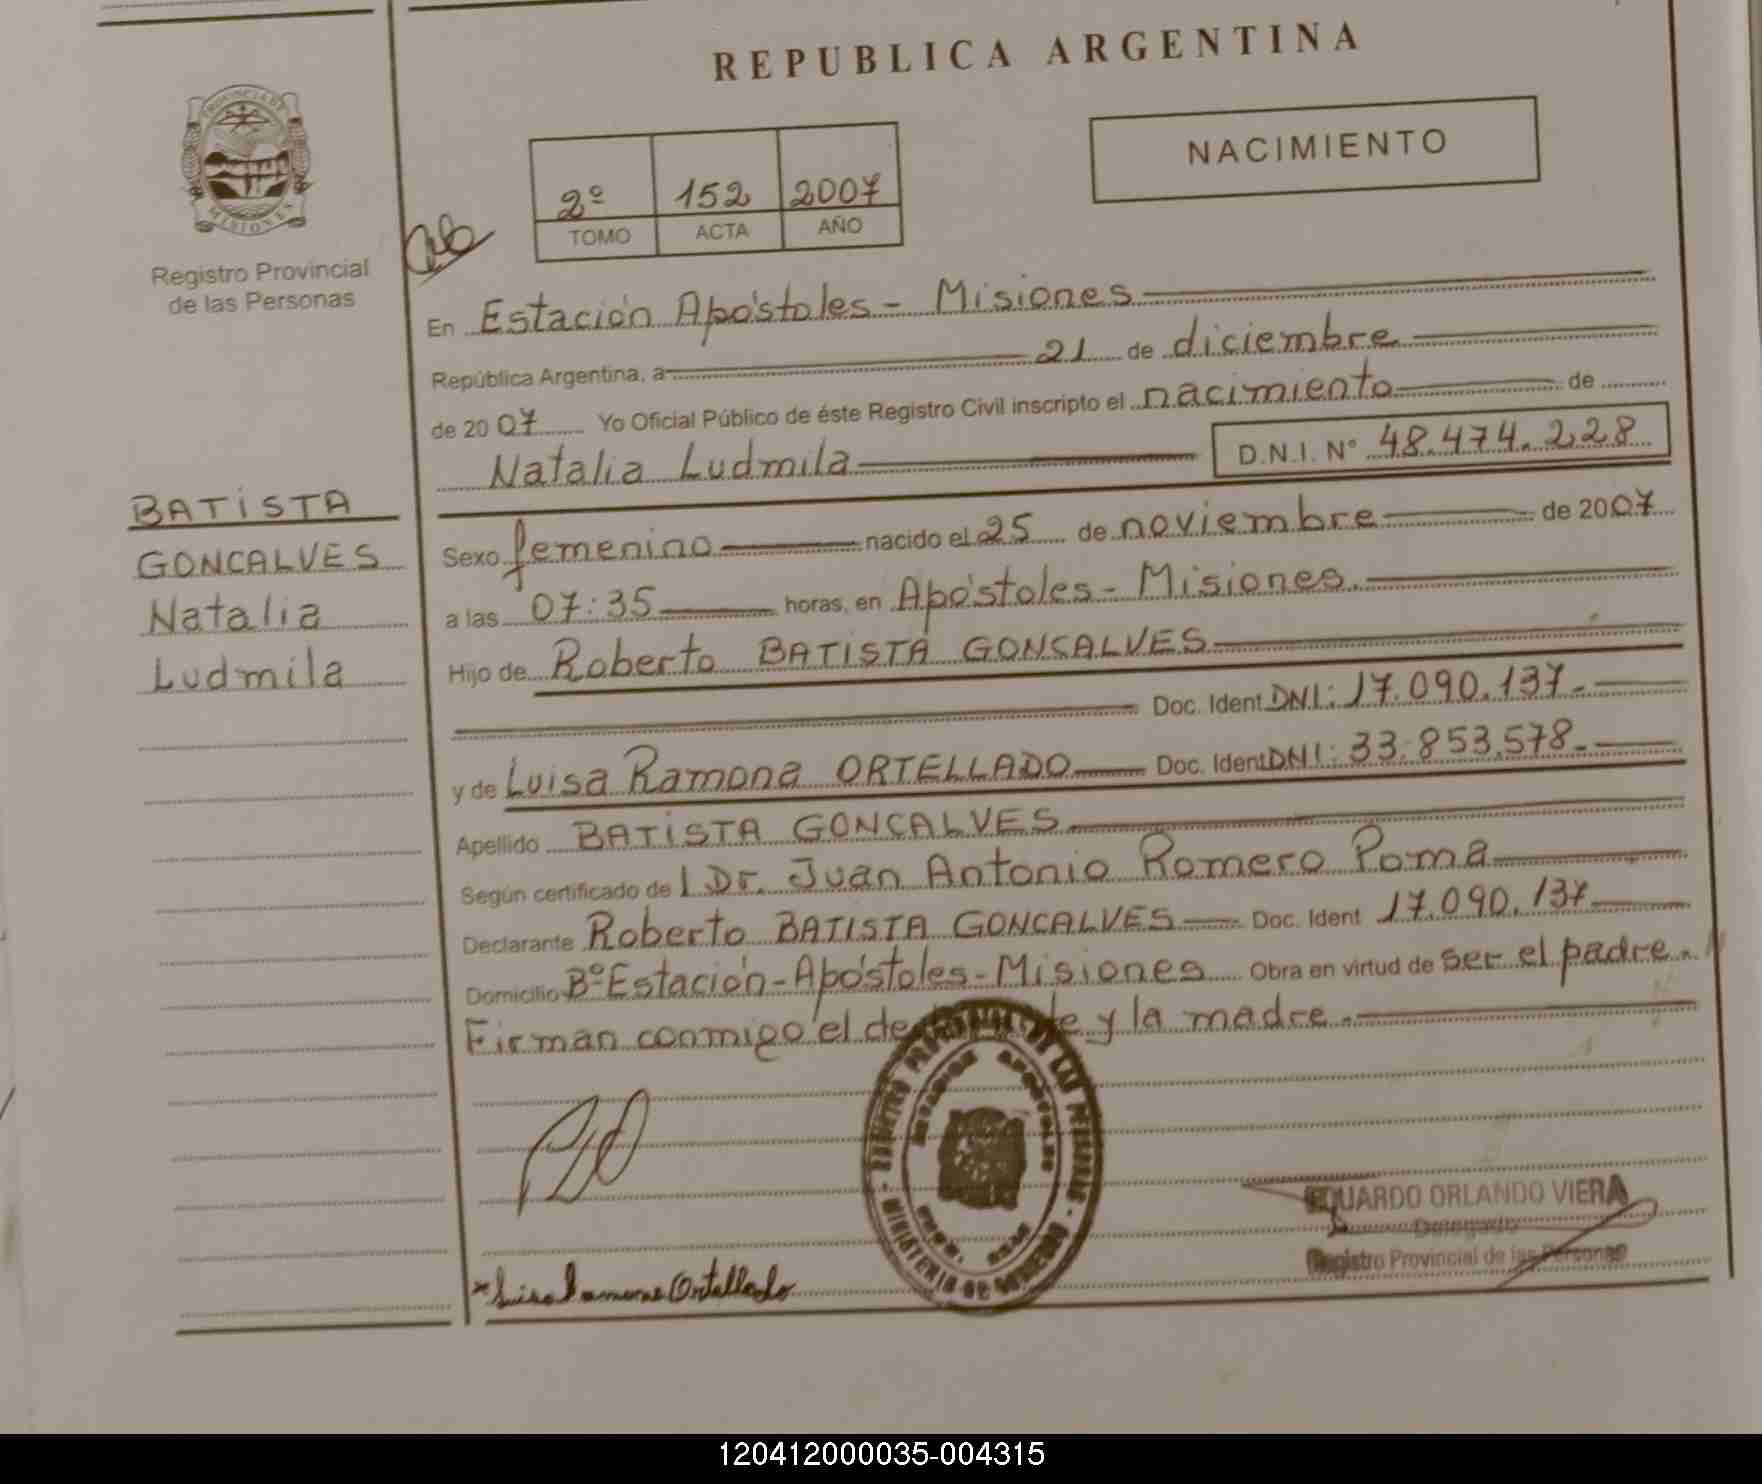 REPUBLICA ARGENTINA
NACIMIENTO
2º 152 2007
TOMO ACTA AÑO
PROVINCIA DE
MISIONES
Registro Provincial
de las Personas
BATISTA
GONCALVES
Natalia
Ludmila
En Estación Apóstoles - Misiones
República Argentina, a 21 de diciembre
de 2007 Yo Oficial Público de éste Registro Civil inscripto el nacimiento de
Natalia Ludmila D.N.I. Nº 48.474.228
Sexo femenino nacido el 25 de noviembre de 2007
a las 07:35 horas, en Apóstoles - Misiones.
Hijo de Roberto BATISTA GONSALVES
Doc. Ident DNI: 17.090.137.-
y de Luisa Ramona ORTELLADO Doc. Ident DNI: 33.853.578.-
Apellido BATISTA GONCALVES
Según certificado de l Dr. Juan Antonio Romero Poma
Declarante Roberto BATISTA GONCALVES Doc. Ident 17.090.137
Domicilio Bº Estación - Apóstoles - Misiones Obra en virtud de ser el padre.
Firman conmigo el declarante y la madre.-
REGISTRO PROVINCIAL DE LAS PERSONAS - MINISTERIO DE GOBIERNO
ESTACION APOSTOLES
Luisa Ramona Ortellado
EDUARDO ORLANDO VIERA
Delegado
Registro Provincial de las Personas
120412000035-004315